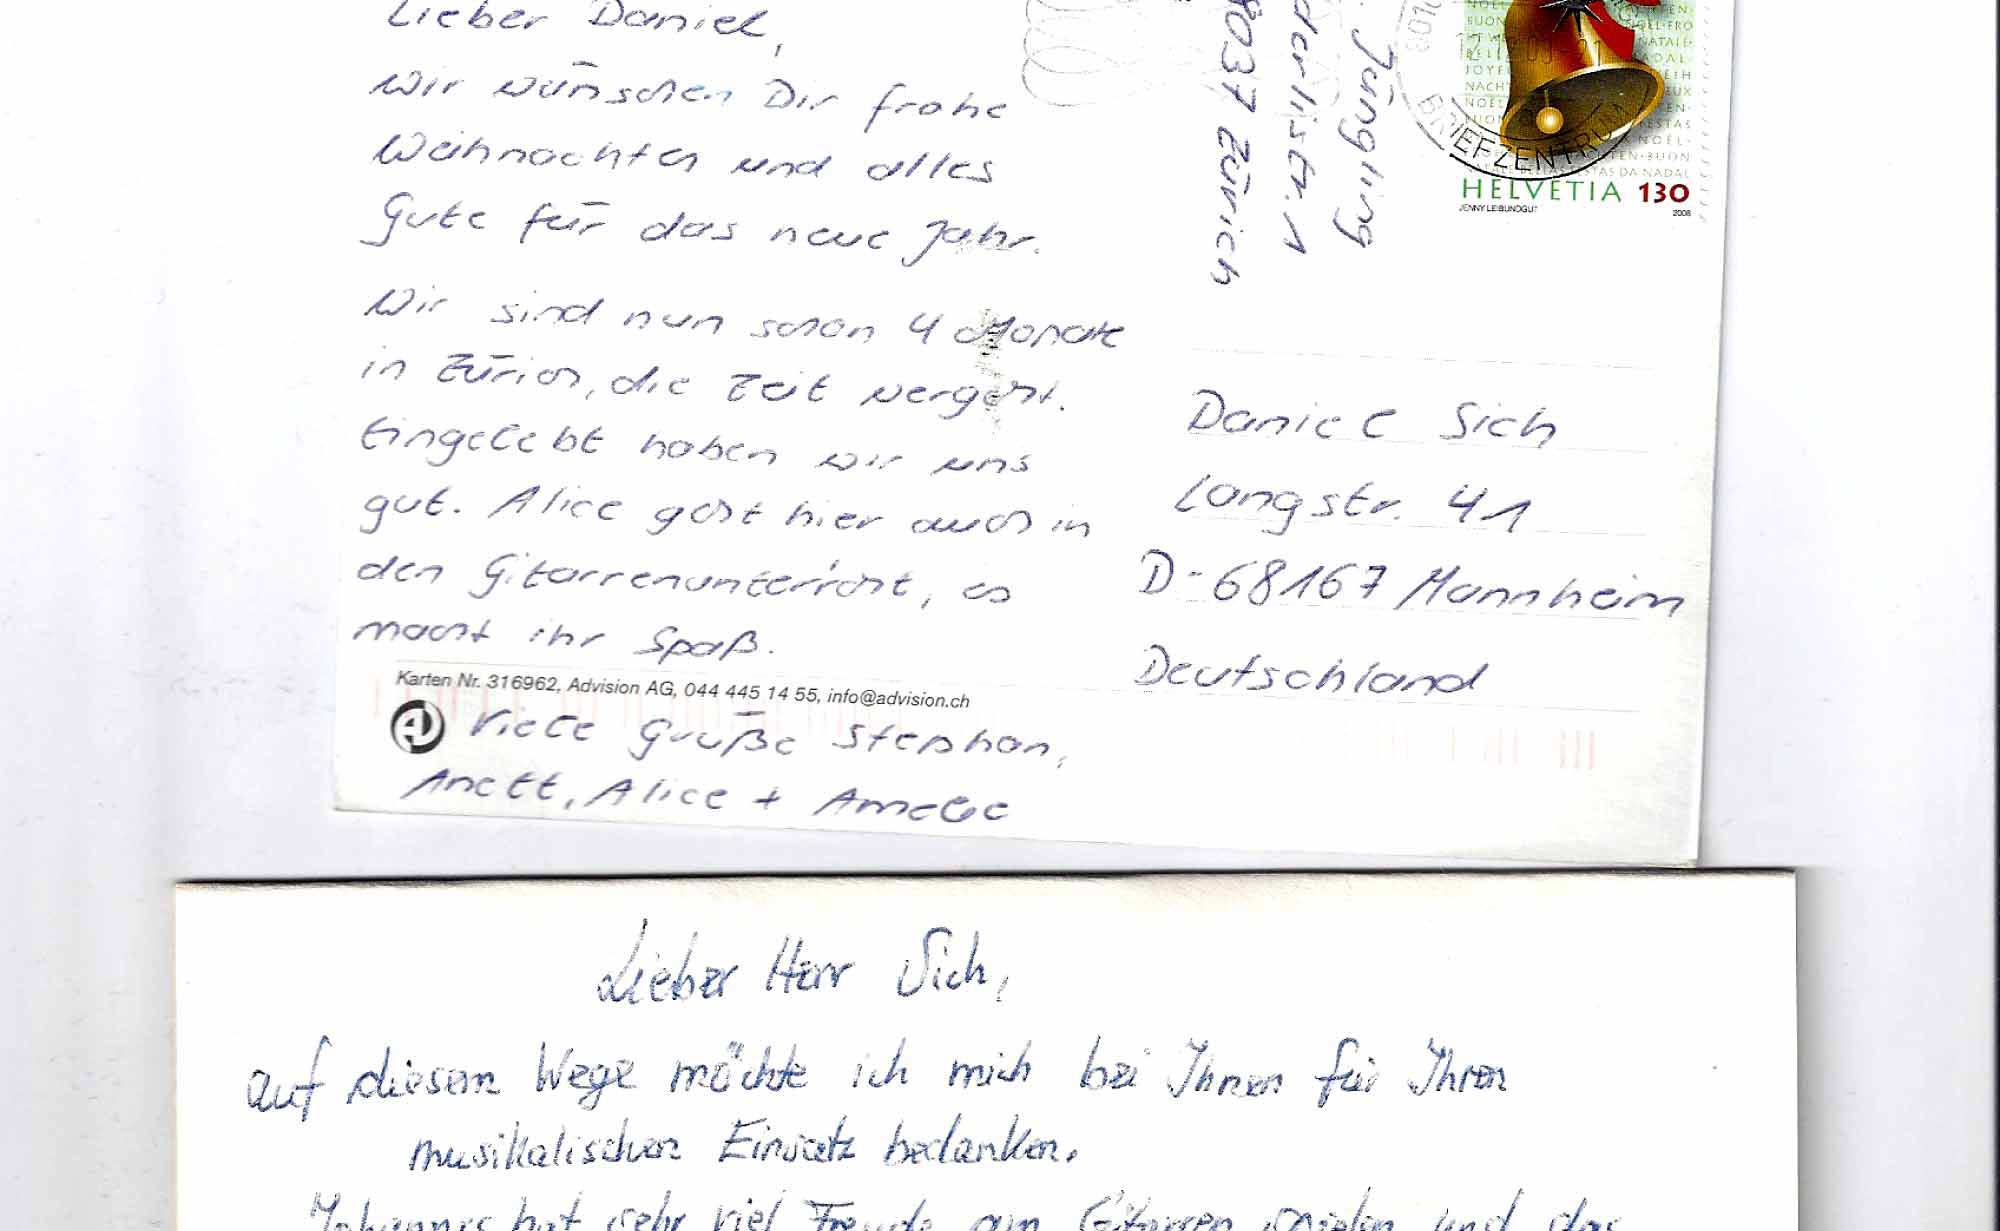 Lieber Daniel,
wir wünschen Dir frohe
Weihnachten und alles
Gute für das neue Jahr.
Wir sind nun schon 4 Monate
in Zürich, die Zeit vergeht.
Eingelebt haben wir uns
gut. Alice geht hier auch in
den Gitarrenunterricht, es
macht ihr Spaß.
Karten Nr. 316962, Advision AG, 044 445 14 55, info@advision.ch
Viele Grüße Stephan,
Anett, Alice + Amelie
Jüngling
derlistr. 1
8037 Zürich
BRIEFZENTRUM
HELVETIA 130
JENNY LEIBUNDGUT 2008
Daniel Sich
Langstr. 41
D-68167 Mannheim
Deutschland
Lieber Herr Sich,
auf diesem Wege möchte ich mich bei Ihnen für Ihren
musikalischen Einsatz bedanken.
Johannes hat sehr viel Freude am Gitarren spielen und das